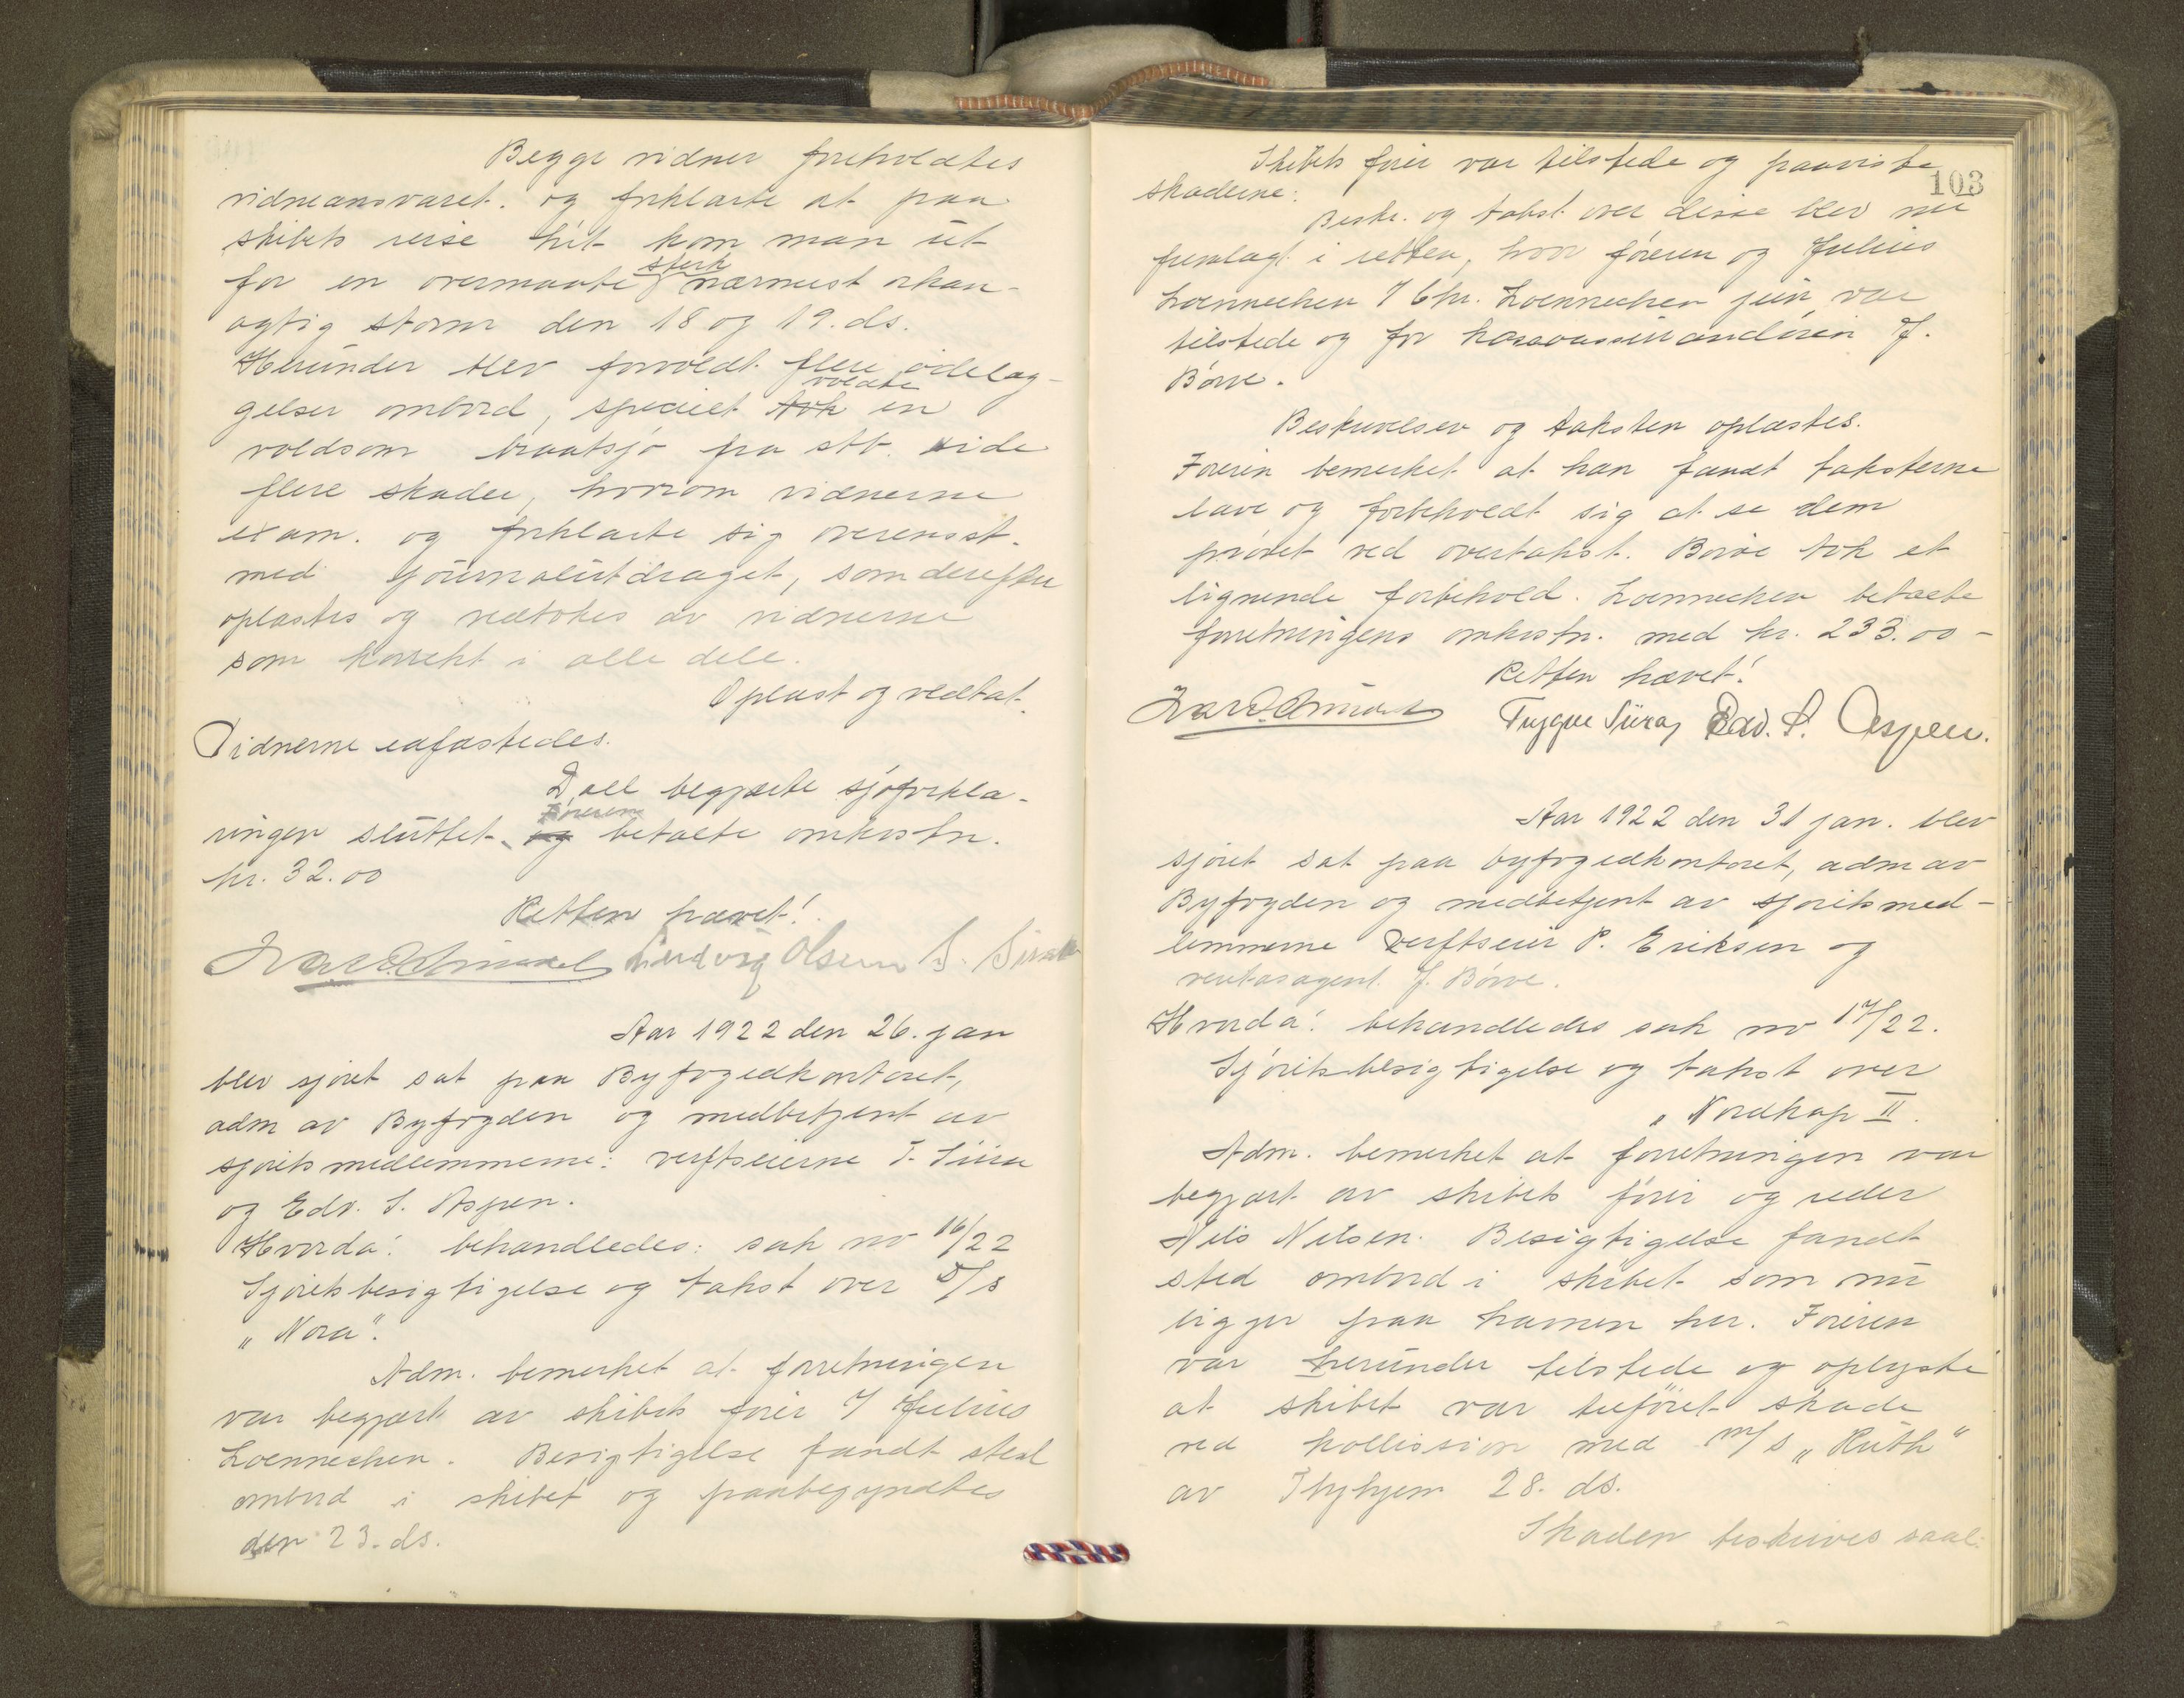 Begge vidner foreholdtes
vidneansvaret. og forklarte at paa
skibets reise hit kom man ut
for en overmaate sterk nærmest orkan-
agtig storm den 18 og 19. ds.
Herunder blev forvoldt flere ödelæg-
gelser ombord, specielt tok voldte en
voldsom braatsjö fra stb. side
flere skader, hvorom vidnerne
exam. og forklarte sig overensst.
med journalutdraget, som derefter
oplæstes og vedtokes av vidnerne
som korrekt i alle dele.
Oplæst og vedtat.
Vidnerne edfæstedes.
Doll begjærte sjöforkla-
ringen sluttet. og Föreren betalte omkostn.
kr. 32.00
Retten hævet!
Ludvig Olsen S.
Aar 1922 den 26. jan
blev sjöret sat paa Byfogedkontoret,
adm av Byfogden og medbetjent av
sjöretsmedlemmerne: verftseierne T. Siira
og Edv. S. Aspen.
Hvorda! behandledes: sak no 16/22
Sjöretsbesigtigelse og takst over D/s
„Nora“.
Adm. bemerket at forretningen
var begjært av skibets förer v/ Julius
Loennechen. Besigtigelse fandt sted
ombord i skibet og paabegyndtes
den 23. ds.
103
Skibets förer var tilstede og paaviste
skaderne:
Beskr. og takst over disse blev nu
fremlagt i retten, hvor föreren og Julius
Loennechen v/ Chr. Loennechen jun, var
tilstede og for kaskoassurandören J.
Börve.
Beskrivelsen og taksten oplæstes.
Föreren bemerket at han fandt taksterne
lave og forbeholdt sig at se dem
prövet ved overtakst. Börve tok et
lignende forbehold. Loennechen betalte
forretningens omkostn. med kr. 233.00 -
Retten hævet!
Trygve Siira Edv. S. Aspen.
Aar 1922 den 31 jan. blev
sjöret sat paa byfogedkontoret, adm av
Byfogden og medbetjent av sjöretsmed-
lemmerne verftseier P. Eriksen og
veritasagent J. Börve.
Hvorda! behandledes sak no 17/22.
Sjöretsbesigtigelse og takst over
„Nordkap II.
Adm. bemerket at forretningen var
begjært av skibets förer og reder
Nils Nilsen. Besigtigelse fandt
sted ombord i skibet som nu
ligger paa havnen her. Föreren
var herunder tilstede og oplyste
at skibet var tilföiet skade
ved kollission med m/s „Ruth“
av Thyhjem 28. ds.
Skaden beskrives saal.